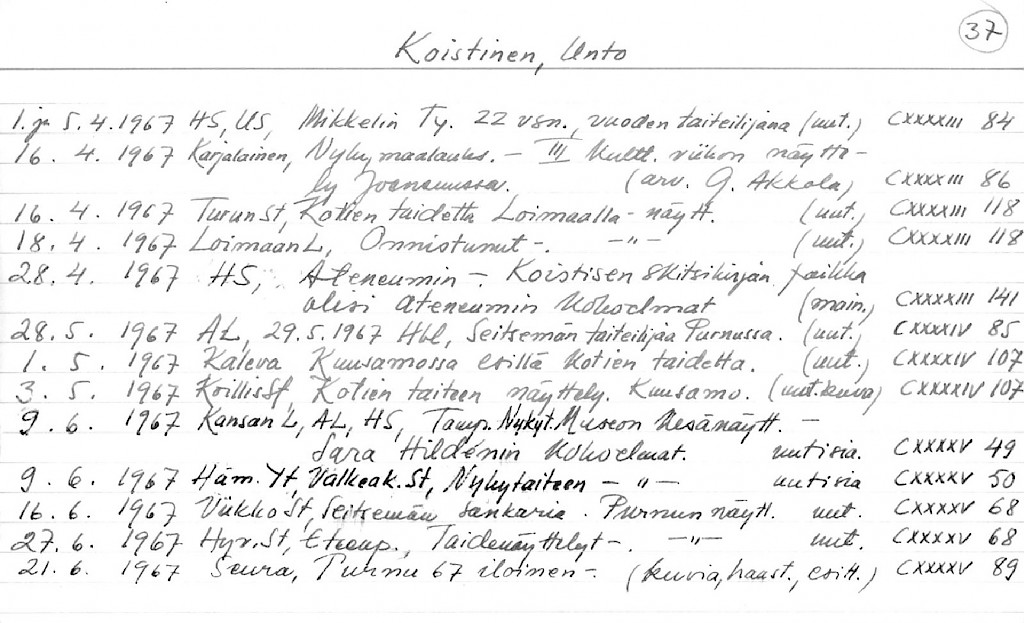 37
Koistinen, Unto
1. ja 5.4.1967 HS, US, Mikkelin Ty. 22 vsn., vuoden taiteilijana (uut.) CXXXXIII 84
16. 4. 1967 Karjalainen, Nykymaalauks. - III Kultt. viikon näytte-
ly Joensuussa. (arv. G. Akkola) CXXXXIII 86
16. 4. 1967 TurunSt, Kotien taidetta Loimaalla - näytt. (uut.) CXXXXIII 118
18. 4. 1967 LoimaanL, Onnistunut -. -"- (uut.) CXXXXIII 118
28. 4. 1967 HS, Ateneumin - Koistisen skitsikirjan paikka
olisi Ateneumin kokoelmat (main.) CXXXXIII 141
28. 5. 1967 AL, 29.5.1967 Hbl, Seitsemän taiteilijaa Purnussa. (uut.) CXXXXIV 85
1. 5. 1967 Kaleva Kuusamossa esillä kotien taidetta. (uut.) CXXXXIV 107
3. 5. 1967 KoillisSt, Kotien taiteen näyttely. Kuusamo. (uut. kuva) CXXXXIV 107
9. 6. 1967 Kansan L, AL, HS, Tamp. Nykyt. Museon kesänäytt. -
Sara Hildénin kokoelmat. uutisia. CXXXXV 49
9. 6. 1967 Häm. Yt, Valkeak. St, Nykytaiteen - -"- uutisia CXXXXV 50
16. 6. 1967 ViikkoSt, Seitsemän sankaria. Purnun näytt. uut. CXXXXV 68
27. 6. 1967 Hyv.St, Taidenäyttelyt -. -"- uut. CXXXXV 68
21. 6. 1967 Seura, Purnu 67 iloinen -. (kuvia, haast., esitt.) CXXXXV 89